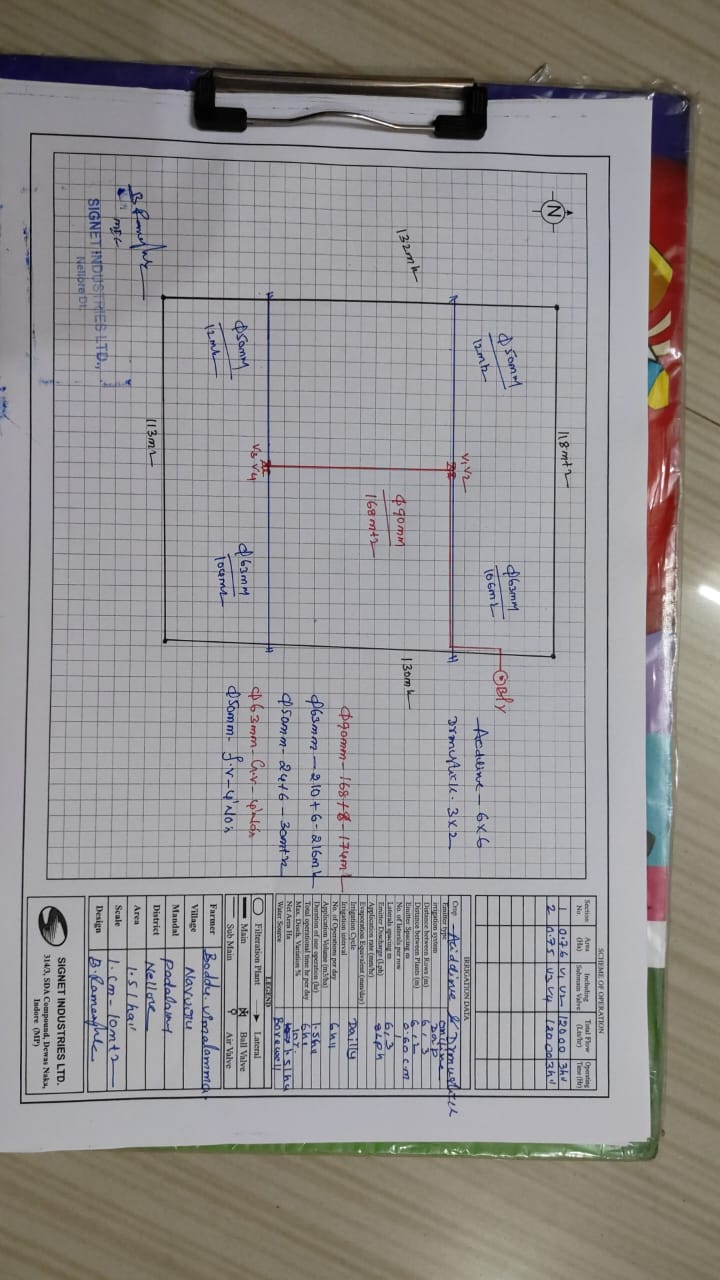 118mt2
N
Φ50mm
12mt
Φ63mm
106m2
B/Y
V1V2
Acidline - 6x6
Drmustick - 3x2
132mt
130mt
Φ90mm
168mt2
Φ90mm - 168+8 - 174mt
Φ63mm - 210+6 - 216mt
Φ50mm - 24+6 - 30mt2
Φ63mm - G.V - 4'No's
Φ50mm - f.v - 4'No's
V3 V4
Φ50mm
12mt
Φ63mm
104m2
113m2
B. Rameshk
SIGNET INDUSTRIES LTD.,
Nellore Dt.
SCHEME OF OPERATION
Section No. Area (Ha) Including Submain Valve Total Flow (Lts/hr) Operating Time (Hr)
1 0.76 V1 V2 12000 3hr
2 0.75 V3 V4 12000 3hr
IRRIGATION DATA
Crop Aciddinie & Drmustick
Emitter type online
irrigation system Drip
Distance between Rows (m) 6, 3
Distance between Plants (m) 6, 2
Emitter Spacing m 0.60 c.m
No. of laterals per row 1
Laterals spacing m 6, 3
Emitter Discharge (Lph) 8Lph
Application rate (mm/hr)
Evaporation Equivalent (mm/day)
Irrigation Cycle Dailly
Irrigation interval
No. of Operations per day 6hr
Application Volume (m3/ha)
Duration of one operation (hr) 1.5hr
Total operational time hr per day 6hr
Max. Disch. Variation % 10%
Net Area Ha 1.51ha
Water Source Borewell
LEGEND
Filteration Plant Lateral
Main Ball Valve
Sub Main Air Valve
Farmer Boddu. Vimalamma
Village Navuru
Mandal Podalakur
District Nellore
Area 1.51ha
Scale 1.cm - 10mt2
Design B. Rameshk
SIGNET INDUSTRIES LTD.
314/3, SDA Compound, Dewas Naka,
Indore (MP)